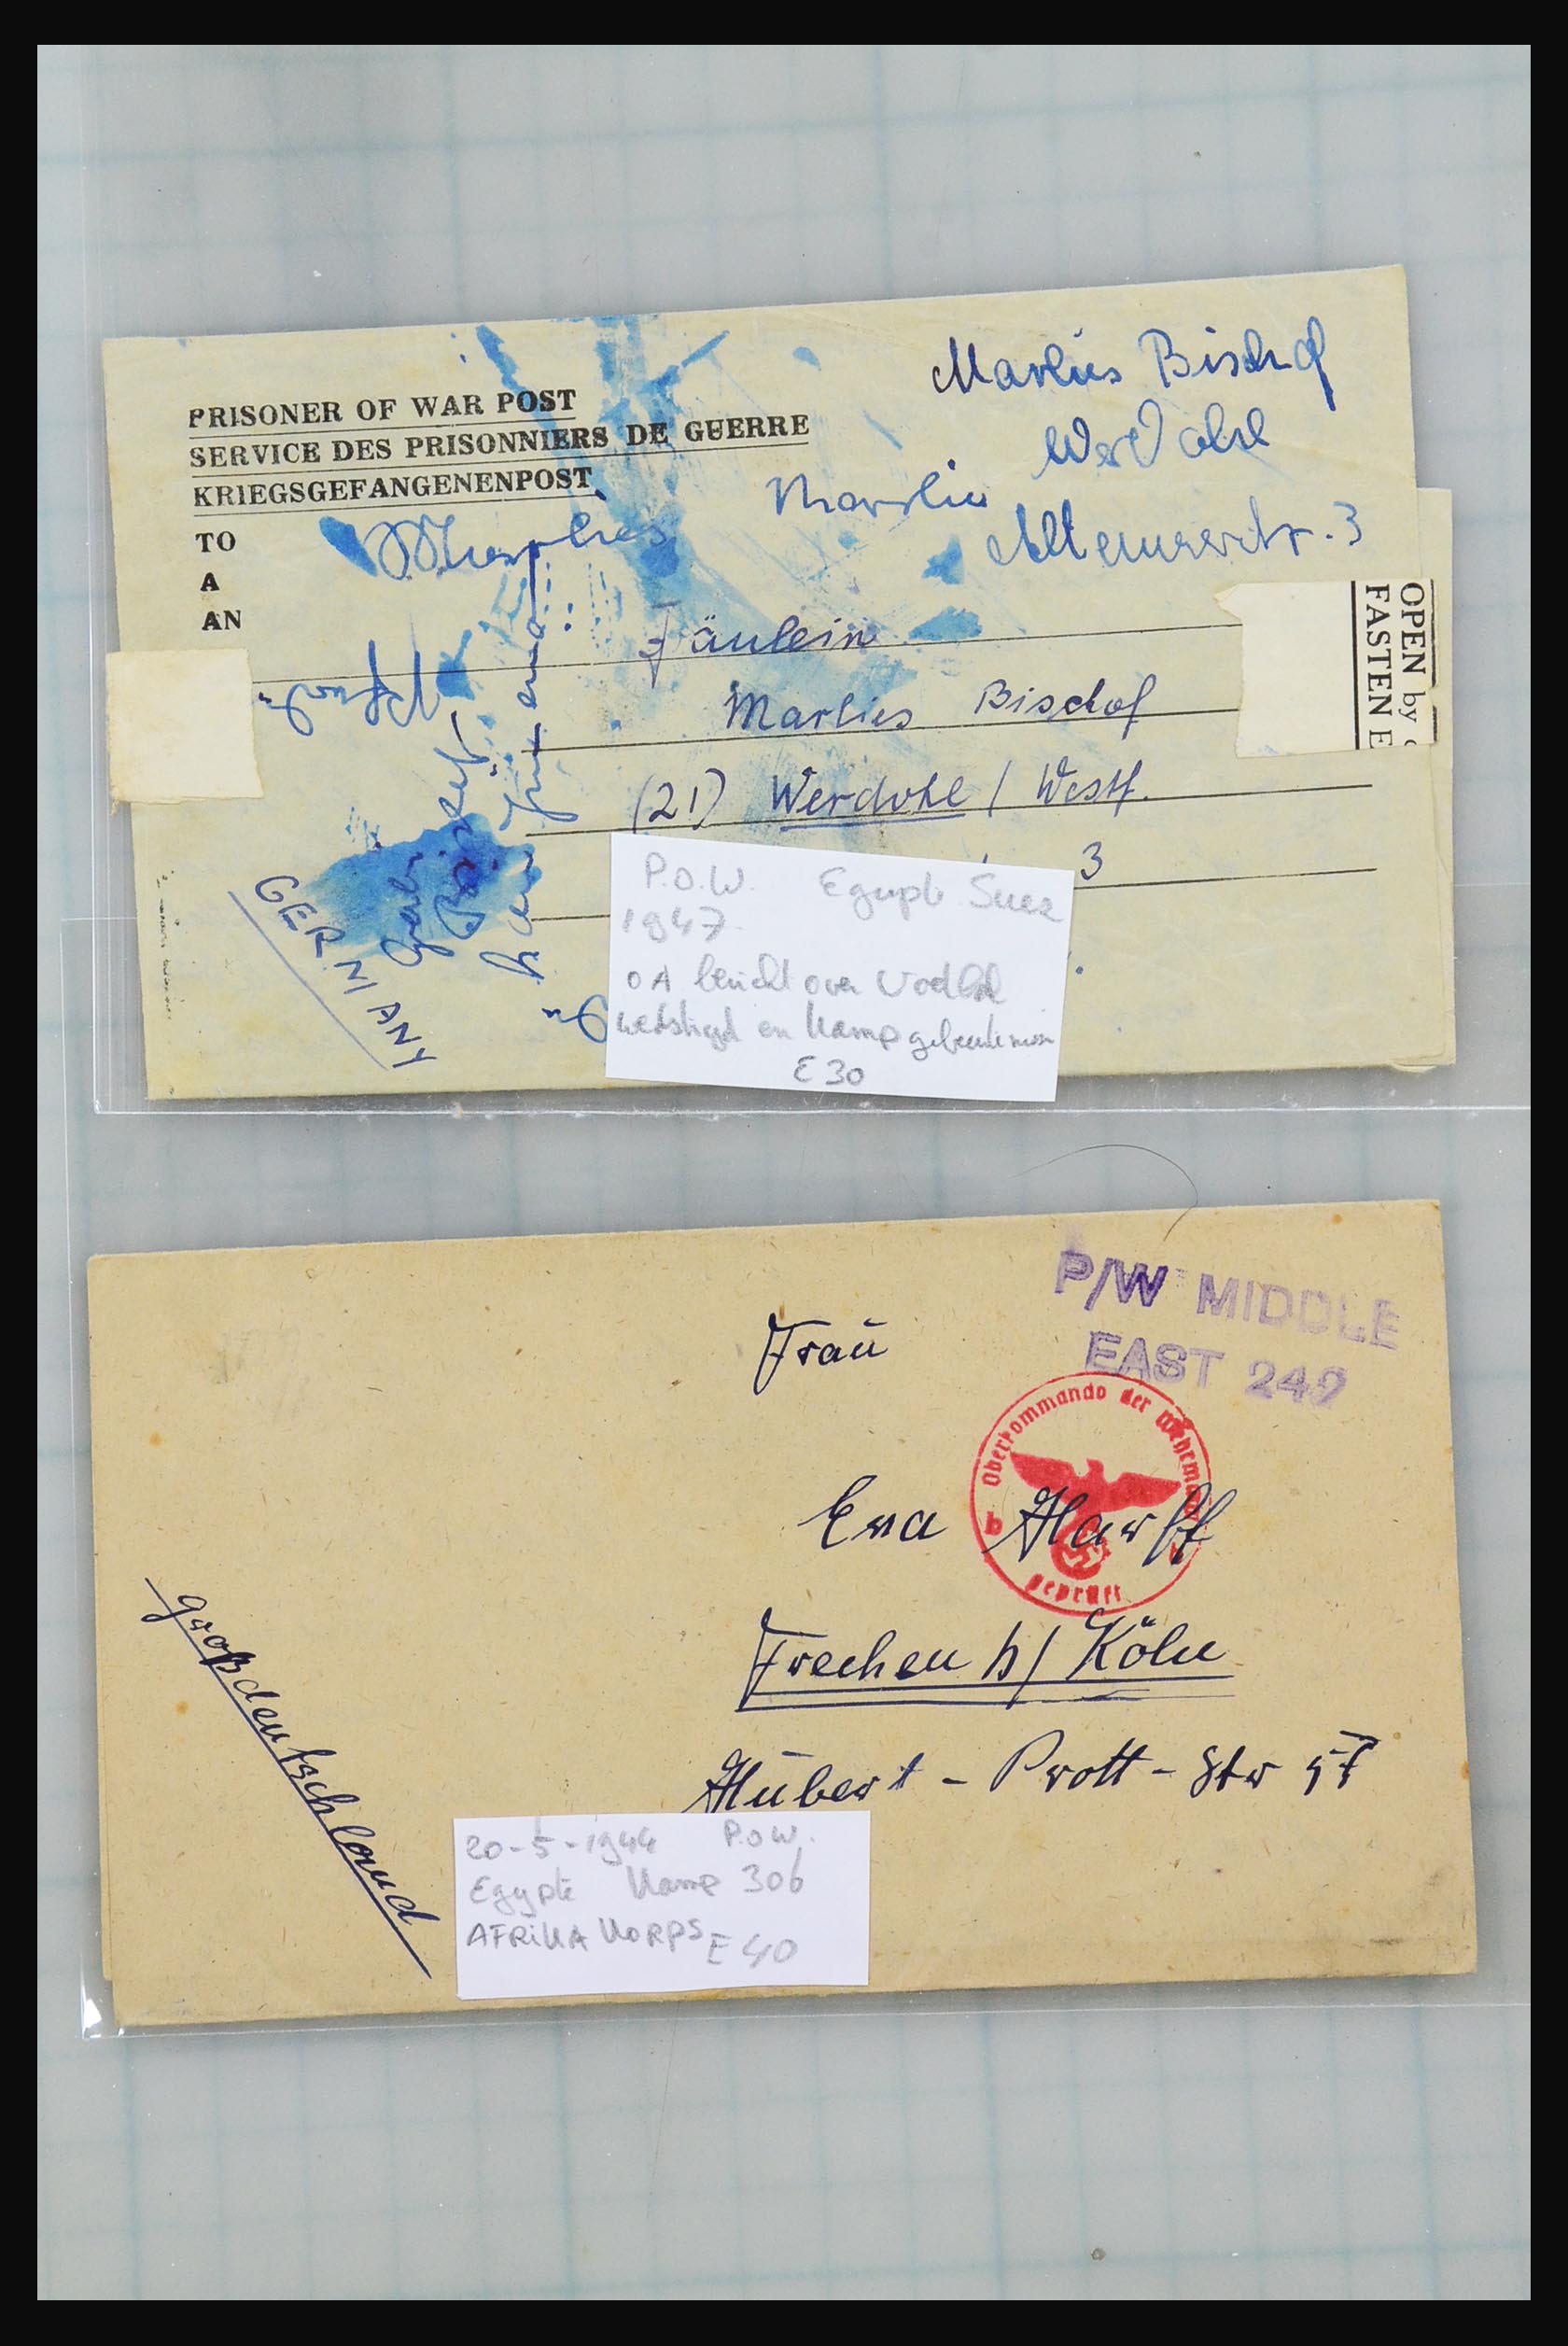 PRISONER OF WAR POST
SERVICE DES PRISONNIERS DE GUERRE
KRIEGSGEFANGENENPOST
TO
A
AN
Marlies Bischof
Werdohl
Marlies
3
OPEN by
FASTEN E
Fräulein
Marlies Bischof
(21) Werdohl / Westf.
3
GERMANY
P.O.W. Egypte Suez
1947
OA bericht over Voetbal
wedstrijd en Kamp
E 30
P/W MIDDLE
EAST 249
Frau
Oberkommando der Wehrma
b
geprüft
Eva Harff
Frechen b/ Köln
Hubert - Prott - Str
Großdeutschland
20-5-1944 P.O.W.
Egypte Kamp 306
AFRIKA KORPS E 40